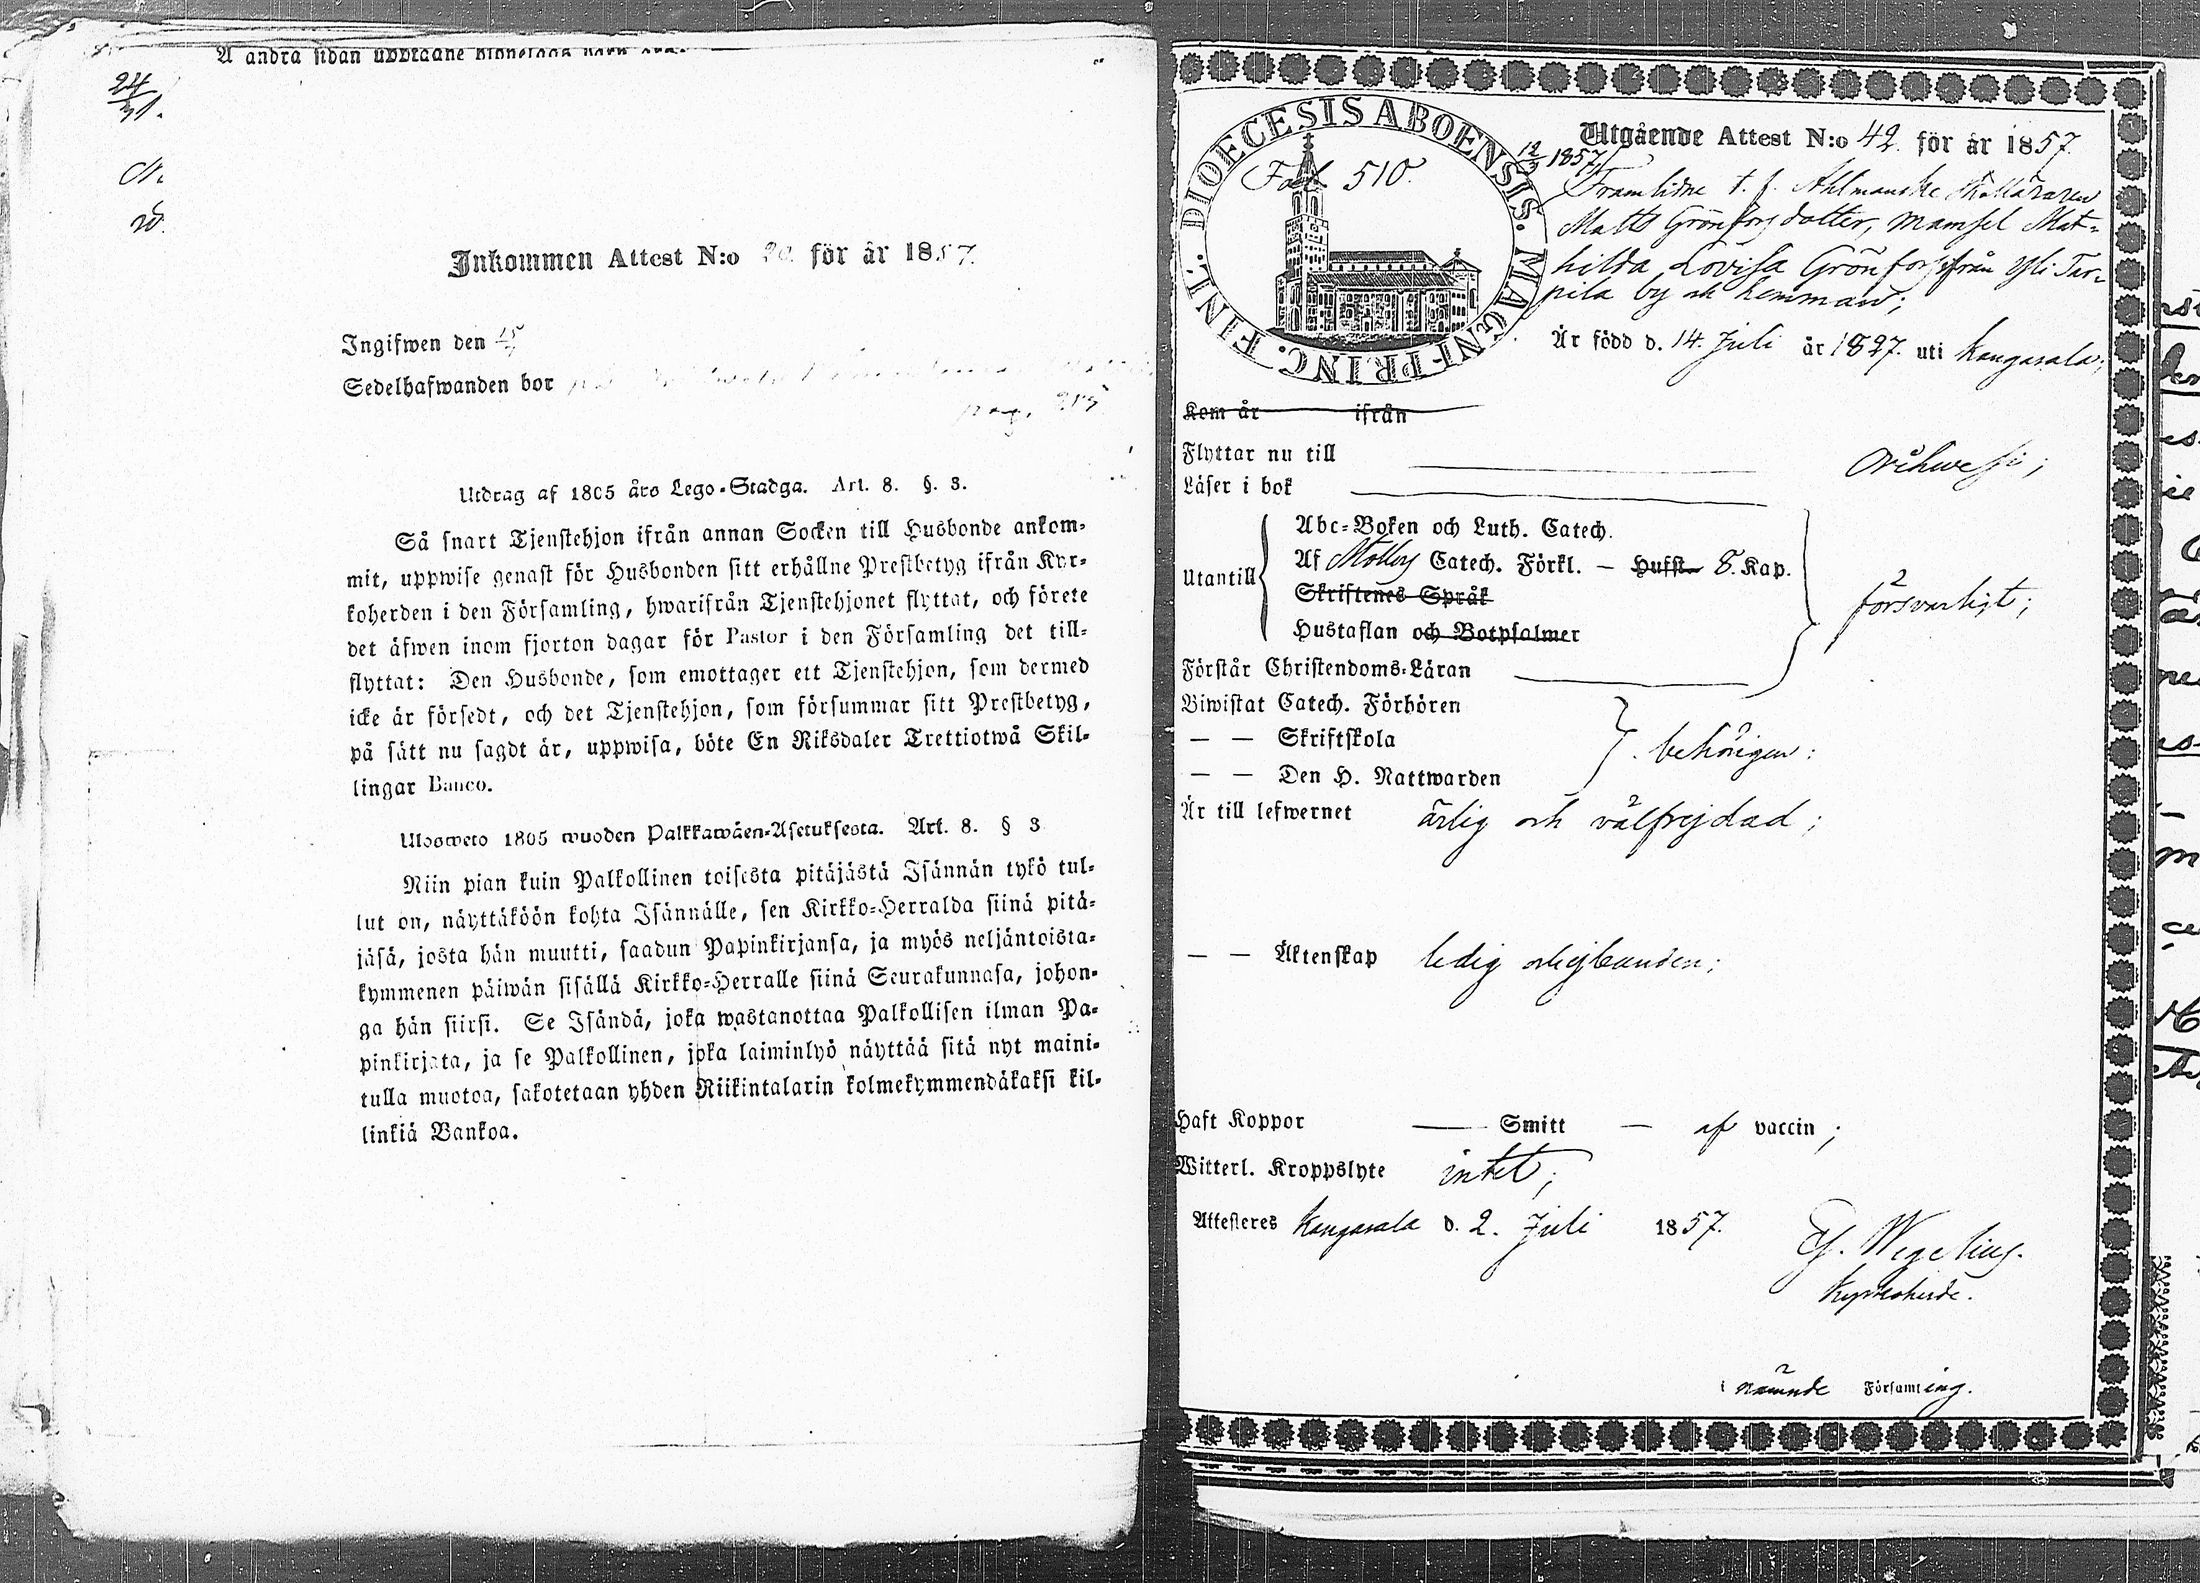 Å andra sidan upptagne
24
Inkommen Attest N:o 20. för år 1857.
Ingifwen den 15
Sedelhafwanden bor
pag. 215
Utdrag af 1805 års Lego-Stadga. Art. 8. §. 3.
Så snart Tjenstehjon ifrån annan Socken till Husbonde ankom-
mit, uppwise genast för Husbonden sitt erhållne Prestbetyg ifrån Kyr-
koherden i den Församling, hwarifrån Tjenstehjonet flyttat, och förete
det äfwen inom fjorton dagar för Pastor i den Församling det till-
flyttat: Den Husbonde, som emottager ett Tjenstehjon, som dermed
icke är försedt, och det Tjenstehjon, som försummar sitt Prestbetyg,
på sätt nu sagdt är, uppwisa, böte En Riksdaler Trettiotwå Skil-
lingar Banco.
Ulosweto 1805 wuoden Palkkawäen-Asetuksesta. Art. 8. § 3
Niin pian kuin Palkollinen toisesta pitäjästä Isännän tykö tul-
lut on, näyttäköön kohta Isännälle, sen Kirkko-Herralda siinä pitä-
jäsä, josta hän muutti, saadun Papinkirjansa, ja myös neljäntoista-
kymmenen päiwän sisällä Kirkko-Herralle siinä Seurakunnasa, johon-
ga hän siirsi. Se Isändä, joka wastanottaa Palkollisen ilman Pa-
pinkirjata, ja se Palkollinen, joka laiminlyö näyttää sitä nyt maini-
tulla muotoa, sakotetaan yhden Riikintalarin kolmekymmendäkaksi kil-
linkiä Bankoa.
DIOECESIS ABOENSIS. MAGNI PRINC. FINL.
Fol. 510.
Utgående Attest N:o 42. för år 1857.
12/3 1857
Framlidne t. f. Ahlmanske Skolläraren
Matts Grönfors dotter, Mamsel Mat-
hilda Lovisa Grönfors ifrån Yli Tar-
pila by och hemman;
Är född d. 14. Juli år 1827. uti Kangasala;
Kom år ifrån
Flyttar nu till Orihwesi;
Läser i bok
Abc-Boken och Luth. Catech.
Utantill Af Möllers Catech. Förkl. — Hufst. 8. Kap.
Skriftenes Språk
försvarligt;
Hustaflan och Botpsalmer
Förstår Christendoms-Läran
Biwistat Catech. Förhören
— — Skriftskola
behörigen:
— — Den H. Nattwarden
Är till lefwernet ärlig och välfrejdad;
— — Äktenskap ledig och ej bunden;
Haft Koppor — Smitt — af vaccin;
Witterl. Kroppslyte intet;
Attesteres Kangasala d. 2. Juli 1857.
Wegelius.
Kyrkoherde.
i nämnde Församling.